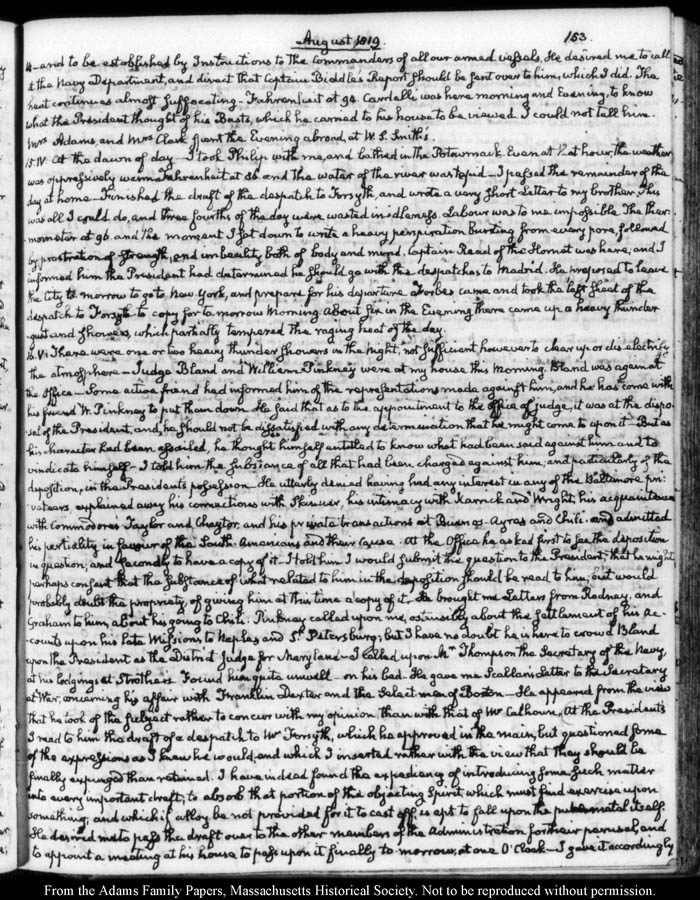 August 1819.
153.
and to be established by Instructions to the Commanders of all our armed vessels. He desired me to call
at the Navy Department, and direct that Captain Biddle's Report should be sent over to him, which I did. The
heat continues almost suffocating - Fahrenheit at 94. Cardelli was here morning and Evening, to know
what the President thought of his Busts, which he carried to his house to be viewed. I could not tell him.
Mrs Adams, and Mrs Clark spent the Evening abroad, at W. S. Smith's.
15. IV. At the dawn of day I took Philip with me, and bathed in the Potowmack. Even at that hour, the weather
was oppressively warm. Fahrenheit at 86 and the water of the river was tepid - I passed the remainder of the
day at home - Finished the draft of the despatch to Forsyth, and wrote a very short Letter to my brother. This
was all I could do, and three fourths of the day were wasted in idleness. Labour was to me impossible. The ther-
mometer at 96. and the moment I sat down to write a heavy perspiration bursting from every pore, followed
by prostration of strength, and imbecility both of body and mind. Captain Read of the Hornet was here, and I
informed him the President had determined he should go with the despatches to Madrid. He proposed to leave
the City to morrow to go to New York, and prepare for his departure. Forbes came and took the last sheet of the
despatch to Forsyth to copy for to-morrow morning. About six in the Evening there came up a heavy thunder
gust and showers, which partially tempered the raging heat of the day.
16. VI. There were one or two heavy thunder showers in the night, not sufficient however to clear up or dis-electrify
the atmosphere - Judge Bland and William Pinkney were at my house this Morning. Bland was again at
the Office - Some active friend had informed him of the representations made against him, and he has come with
his friend W. Pinkney to put them down. He said that as to the appointment to the office of judge, it was at the dispo-
sal of the President, and, he should not be dissatisfied with any determination that he might come to upon it - But as
his character had been assailed, he thought himself entitled to know what had been said against him and to
vindicate himself - I told him the substance of all that had been charged against him; and particularly of the
deposition, in the President's possession. He utterly denied having had any interest in any of the Baltimore pri-
vateers, explained away his connections with Skinner, his intimacy with Karrick and Wright, his acquaintance
with Commodores Taylor and Chaytor, and his private transactions at Buenos-Ayres and Chili. and admitted
his partiality in favour of the South-Americans and their cause. At the Office he asked first to see the deposition
in question; and secondly to have a copy of it - I told him I would submit the question to the President; that he might
perhaps consent that the substance of what related to him in the deposition should be read to him; but would
probably doubt the propriety of giving him at this time a copy of it. He brought me Letters from Rodney, and
Graham to him, about his going to Chili. Pinkney called upon me, ostensibly about the settlement of his Ac-
counts upon his late Missions to Naples and St. Petersburg; but I have no doubt he is here to crowd Bland
upon the President as the District Judge for Maryland - I called upon Mr Thompson the Secretary of the Navy,
at his lodgings at Strothers. Found him quite unwell - on his bed. He gave me Letter to the Secretary
at War, concerning his affair with Franklin Dexter and the Select men of Boston - He appeared from the view
that he took of the subject rather to concur with my opinion than with that of Mr Calhoun. At the President's
I read to him the draft of a despatch to Mr Forsyth, which he approved in the main, but questioned some
of the expressions as I knew he would, and which I inserted rather with the view that they should be
finally expunged than retained. I have indeed found the expediency of introducing some such matter
into every important draft, to absorb that portion of the objecting spirit which must find exercise upon
something; and which if alloy be not provided for it to cast off, is apt to fall upon the pure metal itself.
He desired me to pass the draft over to the other members of the Administration for their perusal, and
to appoint a meeting at his house to pass upon it finally to morrow, at one O'Clock - I gave it accordingly
From the Adams Family Papers, Massachusetts Historical Society. Not to be reproduced without permission.